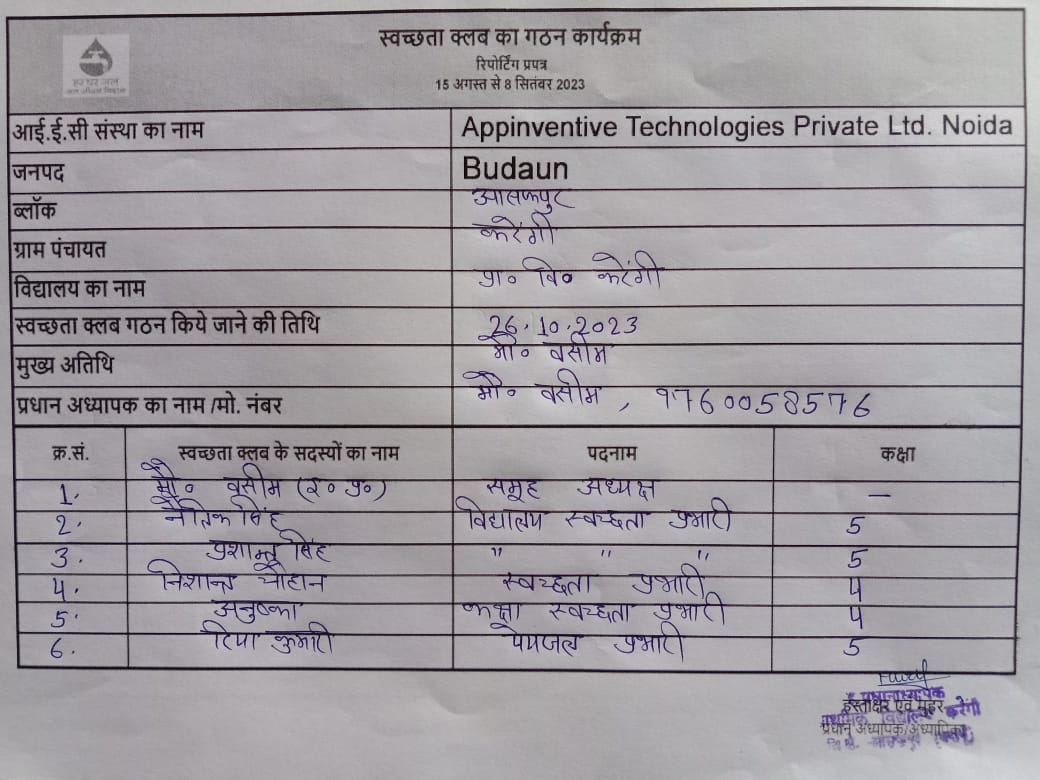 स्वच्छता क्लब का गठन कार्यक्रम
रिपोर्टिंग प्रपत्र
15 अगस्त से 8 सितंबर 2023
हर घर जल
जल जीवन मिशन
आई.ई.सी संस्था का नाम Appinventive Technologies Private Ltd. Noida
जनपद Budaun
ब्लॉक आसफपुर
ग्राम पंचायत करेंगी
विद्यालय का नाम प्रा० वि० करेंगी
स्वच्छता क्लब गठन किये जाने की तिथि 26.10.2023
मुख्य अतिथि मौ० वसीम
प्रधान अध्यापक का नाम /मो. नंबर मौ० वसीम , 9760058576
क्र.सं. स्वच्छता क्लब के सदस्यों का नाम पदनाम कक्षा
1. मौ० वसीम (इ० प्र०) समूह अध्यक्ष —
2. नैतिक सिंह विद्यालय स्वच्छता प्रभारी 5
3. प्रशान्त सिंह " " " 5
4. निशान्त चौहान स्वच्छता प्रभारी 4
5. अनुष्का कक्षा स्वच्छता प्रभारी 4
6. रिया कुमारी पेयजल प्रभारी 5
इ प्रधानाध्यापक
हस्ताक्षर एवं मुहर
प्राथमिक विद्यालय करेंगी
प्रधान अध्यापक/अध्यापिका